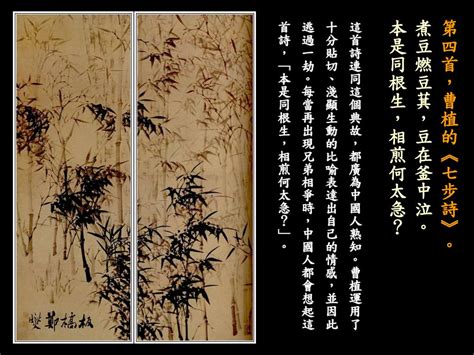 第四首，曹植的《七步詩》。
煮豆燃豆萁，豆在釜中泣。
本是同根生，相煎何太急？
這首詩連同這個典故，都廣為中國人熟知。曹植運用了
十分貼切、淺顯生動的比喻表達出自己的情感，並因此
逃過一劫。每當再出現兄弟相爭時，中國人都會想起這
首詩，「本是同根生，相煎何太急？」。
板橋鄭燮